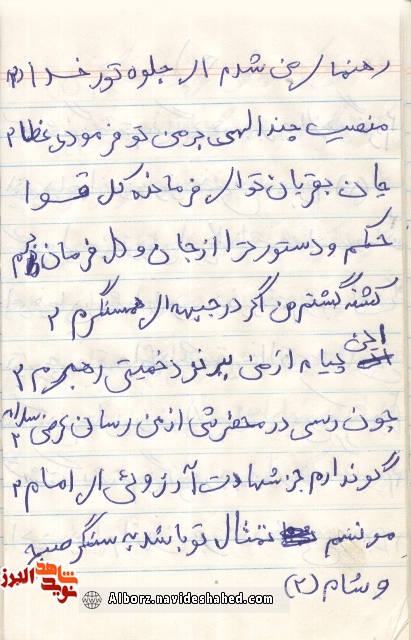 رهنمای من شدم ای جلوه تور خدا (۲)
منصب چند الهی بر من تو فرمودی عطا ۲
جان بقربان تو ای فرمانده کل قوا
حکم و دستور ترا از جان و دل فرمان برم
کشته گشتم من اگر در جبهه ای همسنگرم ۲
این پیام از من ببر نزد خمینی رهبرم ۲
چون رسی در محضرش از من رسان عرض سلام ۲
گو ندارم جز شهادت آرزوئی ای امام ۲
مونسم تمثال تو باشد به سنگر صبح
و شام (۲)
شاهد
نوید البرز
Alborz.navideshahed.com